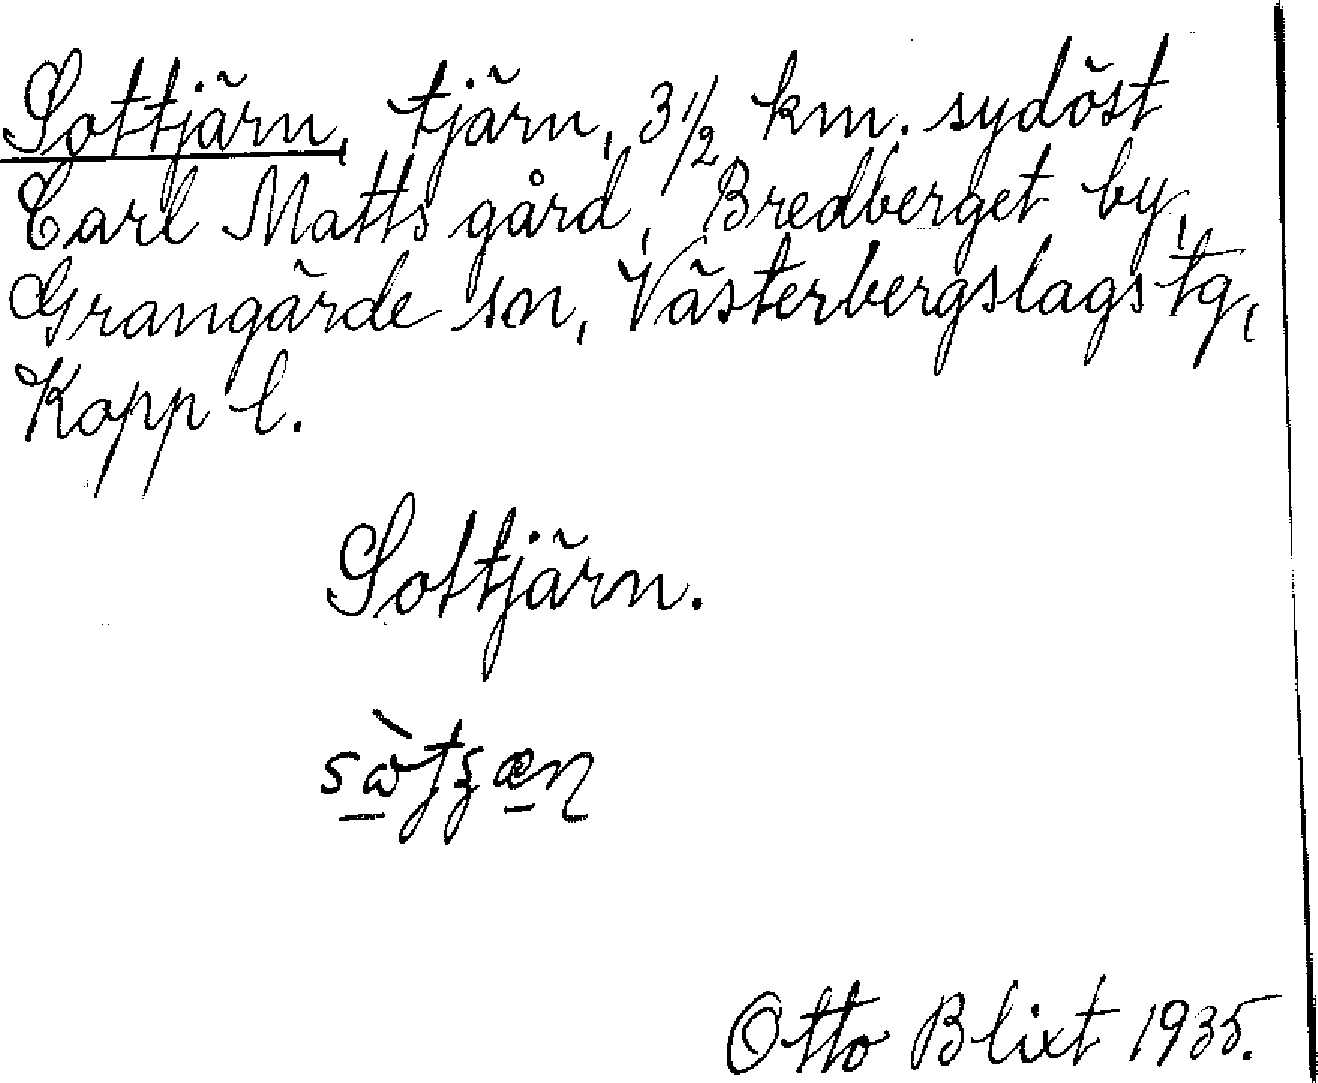 Sottjärn, tjärn, 3 1/2 km. sydöst
Carl Matts gård, Bredberget by,
Grangärde sn, Västerbergslags tg,
Kopp l.
Sottjärn.
Otto Blixt 1935.